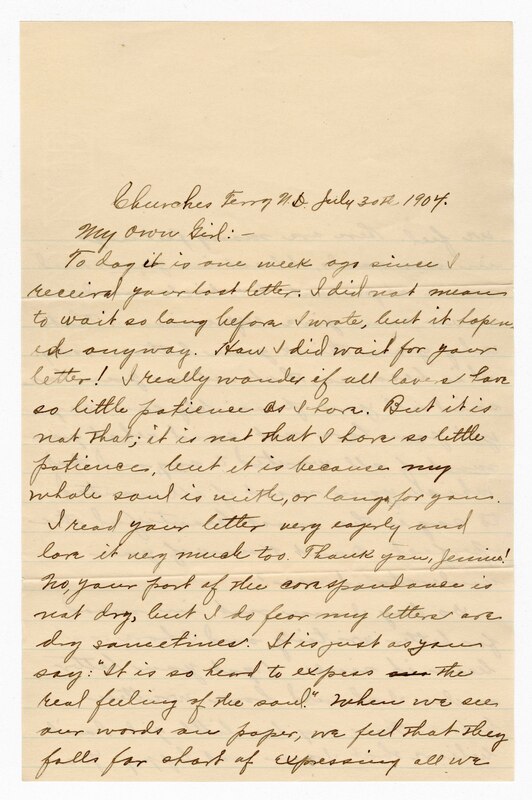 Churches Ferry N.D. July 30th 1904.
My Own Girl:—
To day it is one week ago since I
receivd your last letter. I did not mean
to wait so long before I wrote, but it hapen
ed anyway. How I did wait for your
letter! I really wonder if all lovers have
so little patience as I have. But it is
not that; it is not that I have so little
patience, but it is because my
whole soul is with, or longs for you.
I read your letter very eagerly and
love it very much too. Thank you, Jennie!
No, your part of the corespondance is
not dry, but I do fear my letters are
dry sometimes. It is just as you
say: "It is so hard to expess the
real feeling of the soul." When we see
our words on paper, we feel that they
falls far short of expressing all we